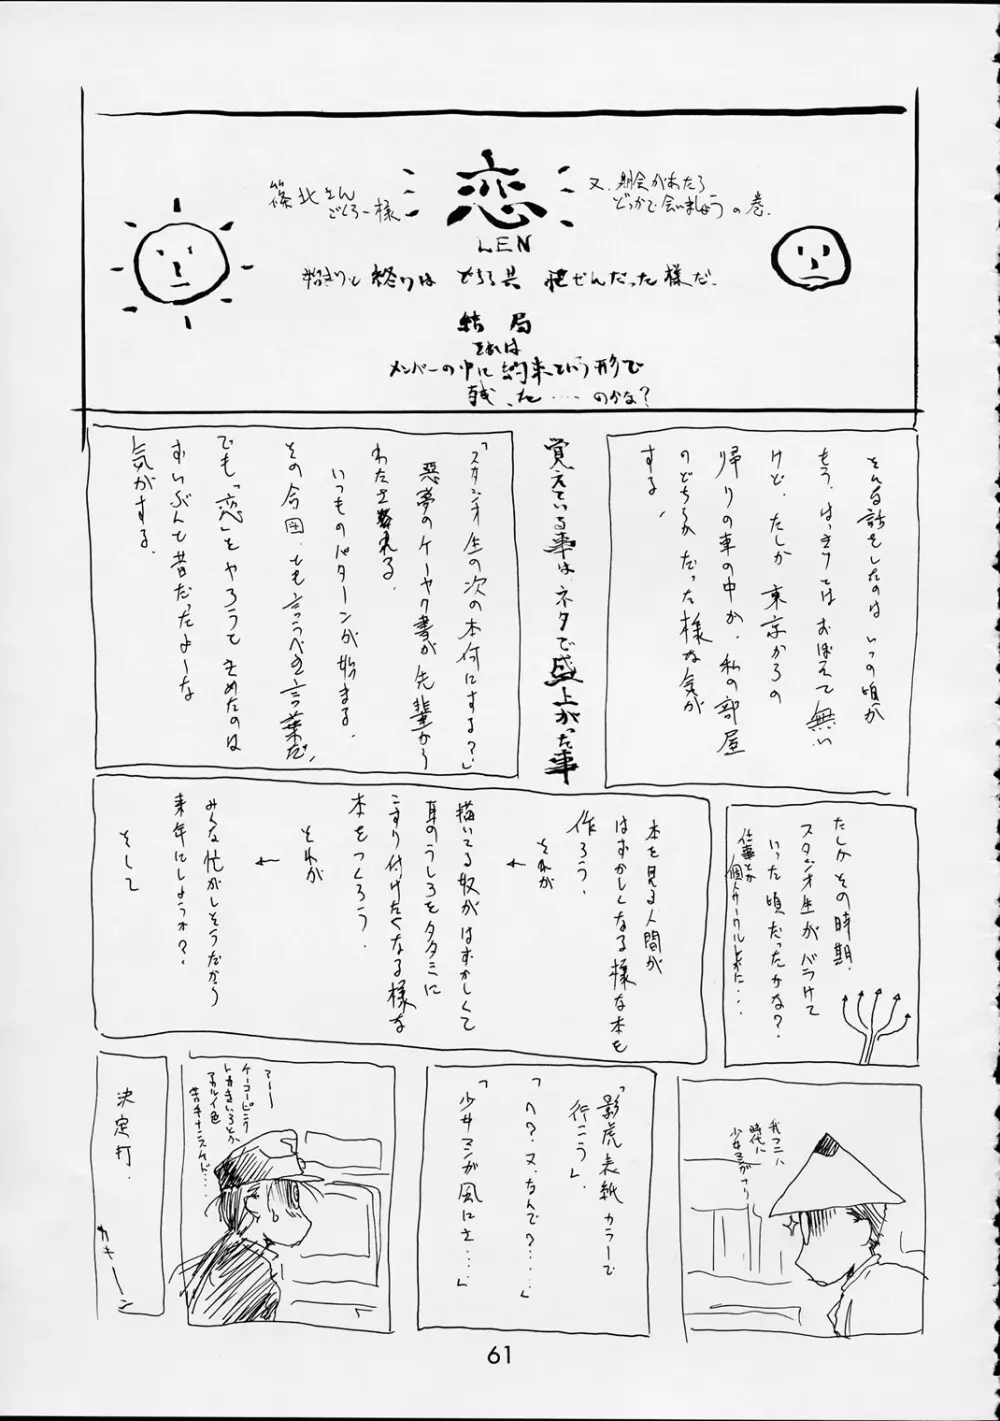 恋
LEN
篠北さん
ごくろー様
又、機会があたら
どっかで会いましょう の巻.
始まりと 終りは どちら共 漠ぜんだった様だ.
結局
それは
メンバーの中に約束という形で
残った……のかな?
そんな話をしたのは いつの頃か
もう、はっきりではおぼえて無い
けど、たしか 東京からの
帰りの車の中か、私の部屋
のどちらかだった様な気が
する。
覚えている事は、ネタで盛上がった事
「スタジオ生の次の本何にする?」
悪夢のケーヤク書が先輩から
わたされる.
いつものパターンが始まる.
その合図、とも言うべき言葉だ、
でも「恋」をやろうときめたのは
ずいぶんと昔だったよーな
気がする.
たしか その時期.
スタジオ生が バラけて
いった頃だったかな?
仕事とか
個人サークルとかに…
本を見る人間が
はずかしくなる様な本を
作ろう.
それが
←
描いてる奴がはずかしくて
耳のうしろをタタミに
こすり付けたくなる様な
本をつくろう.
それが
←
みんな忙がしそうだから
来年にしようか?.
そして
我フニハ
時代ハ
少女マンガナリ
「影虎 表紙 カラーで
行こう」.
「へ?.又.なんで?……」
「少女マンガ風にさ……」
えーー
ケーコーピンク
トカきいろとか
アカルイ色
苦手ナニスケド…
決定打.
カキーーン
61